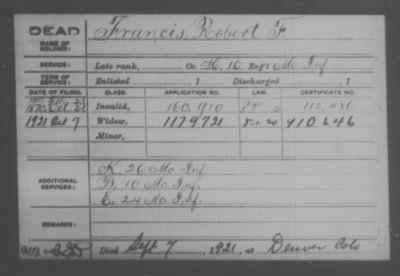 DEAD Francis, Robert F
NAME OF SOLDIER:
SERVICE: Late rank, Co. K, 10 Reg't Mo. Inf
TERM OF SERVICE: Enlisted , 1 Discharged , 1
DATE OF FILING. CLASS. APPLICATION NO. LAW. CERTIFICATE NO.
Invalid, 160,910
1921 Oct 7 Widow, 1179721 910646
Minor,
K. 26 Mo. Inf.
ADDITIONAL SERVICES: B. 10 Mo. Inf.
E. 24 Mo. Inf.
REMARKS:
Died Sept 7, 1921, at Denver Colo